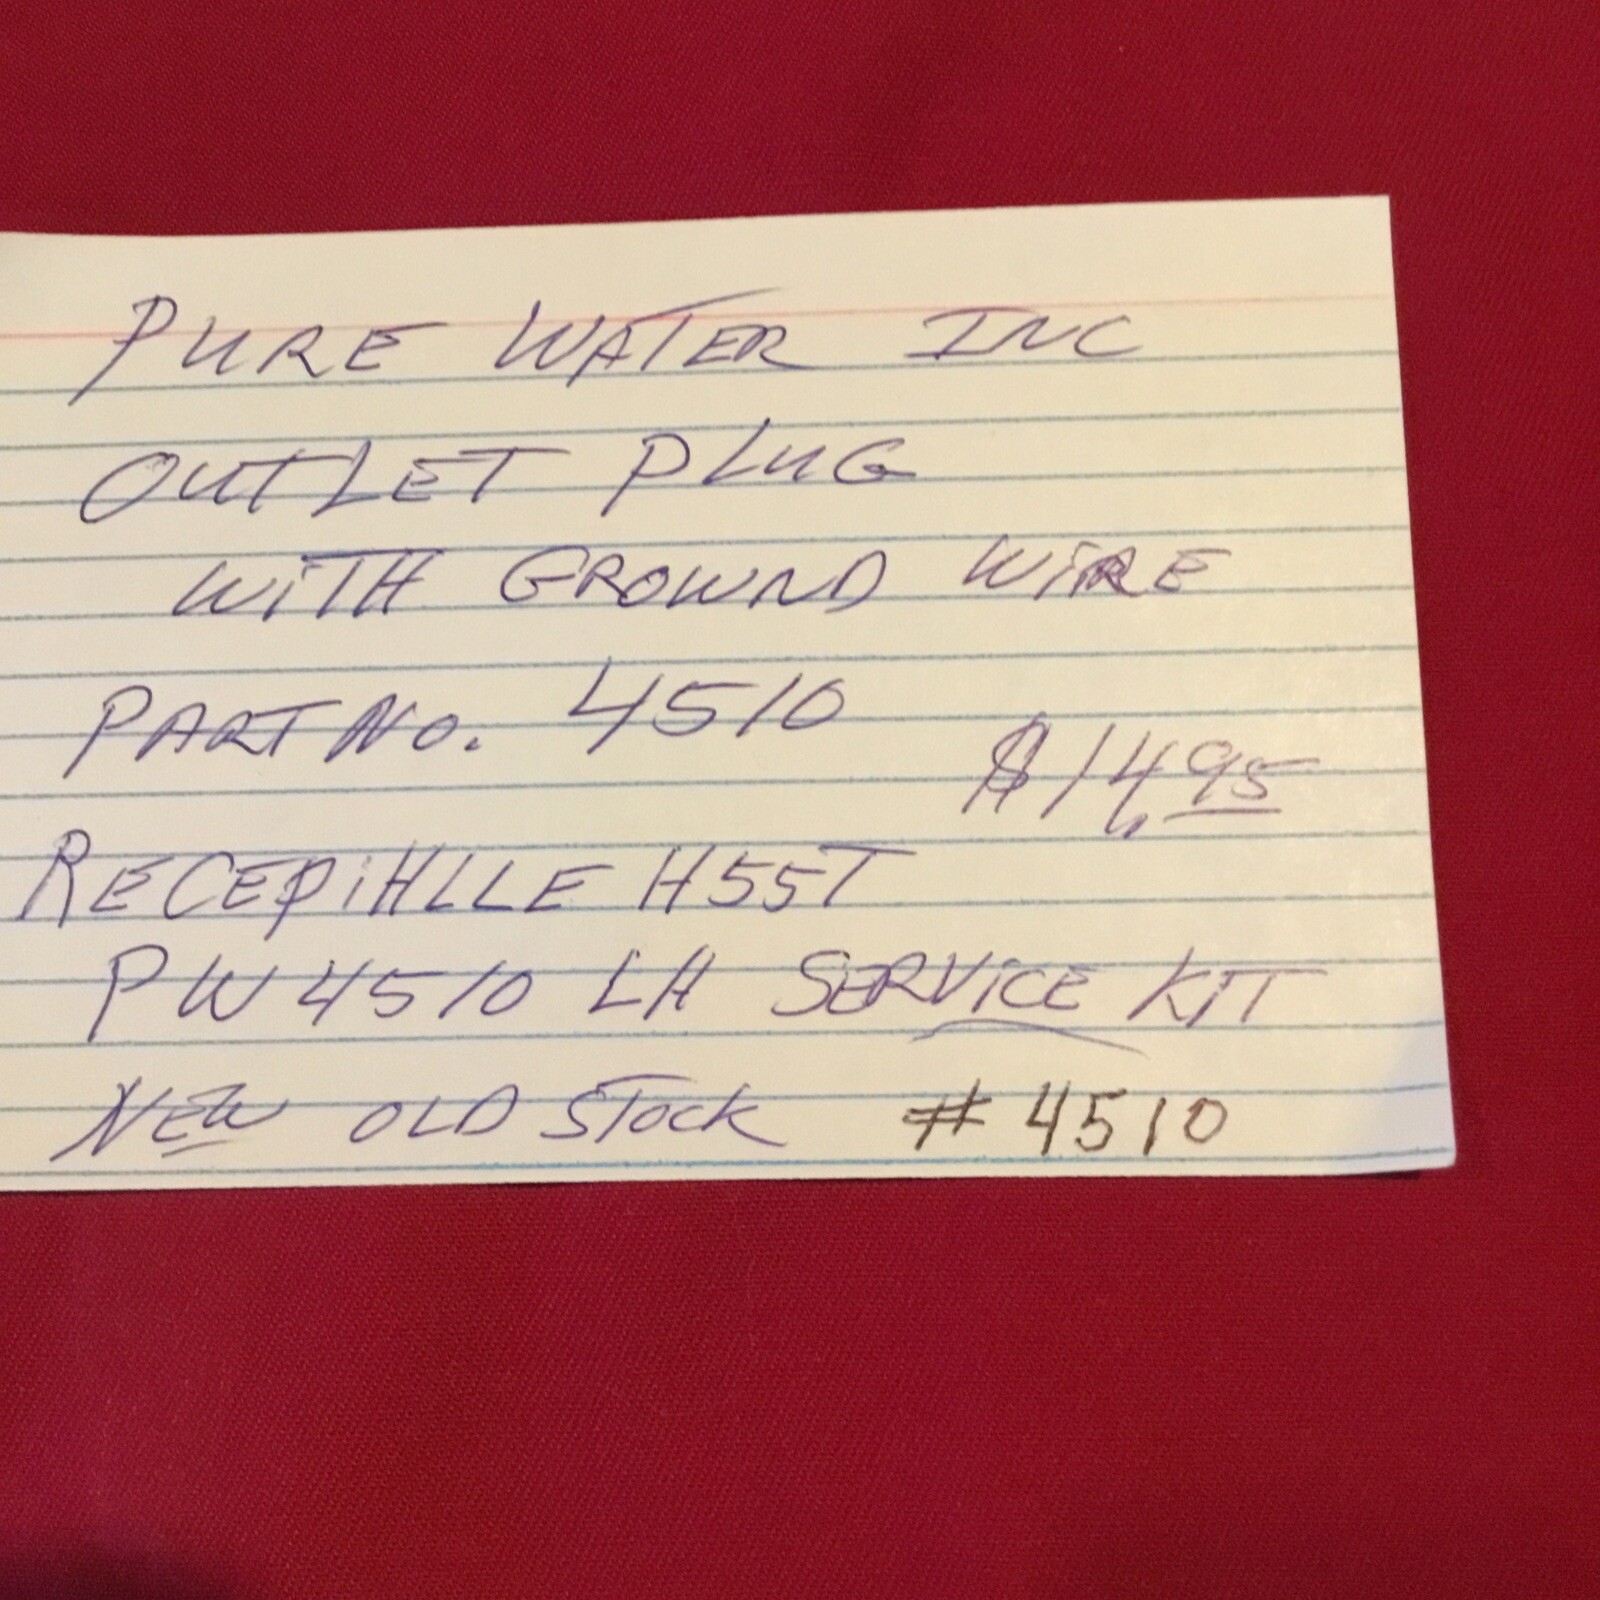 PURE WATER INC
OUTLET PLUG
WITH GROWND WIRE
PART NO. 4510
$14.95
RECEPIHLLE H55T
PW4510 LH SERVICE KIT
NEW OLD STOCK # 4510